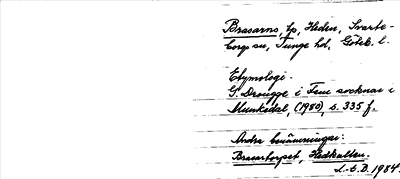 Brasarns, tp, Heden, Svarte-
borgs sn, Tunge hd, Göteb. l.
Etymologi.
G. Drougge i Fem socknar i
Munkedal, (1980), s. 335 f.
Andra benämningar:
Brasartorpet, Hedkullen.
L.-E.D. 1984.